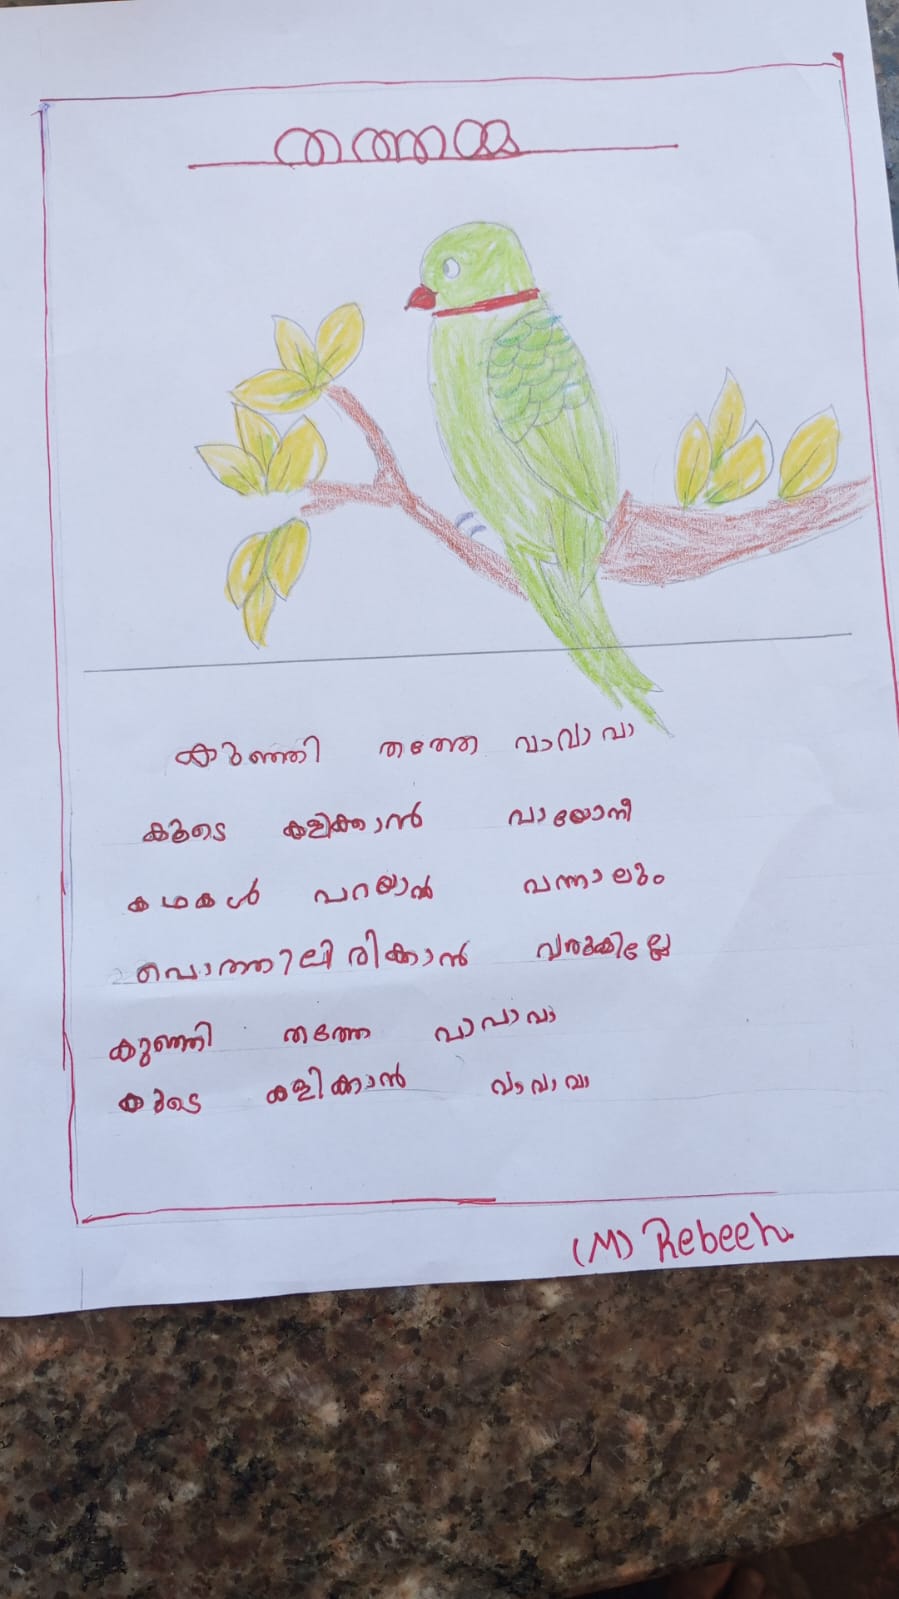 തത്തമ്മ
കുഞ്ഞി തത്തേ വാവാവാ
കൂടെ കളിക്കാൻ വായോനീ
കഥകൾ പറയാൻ വന്നാലും
പൊത്തിലിരിക്കാൻ വരുകില്ലേ
കുഞ്ഞി തത്തേ വാവാവാ
കൂടെ കളിക്കാൻ വാവാവാ
(M) Rebeeh